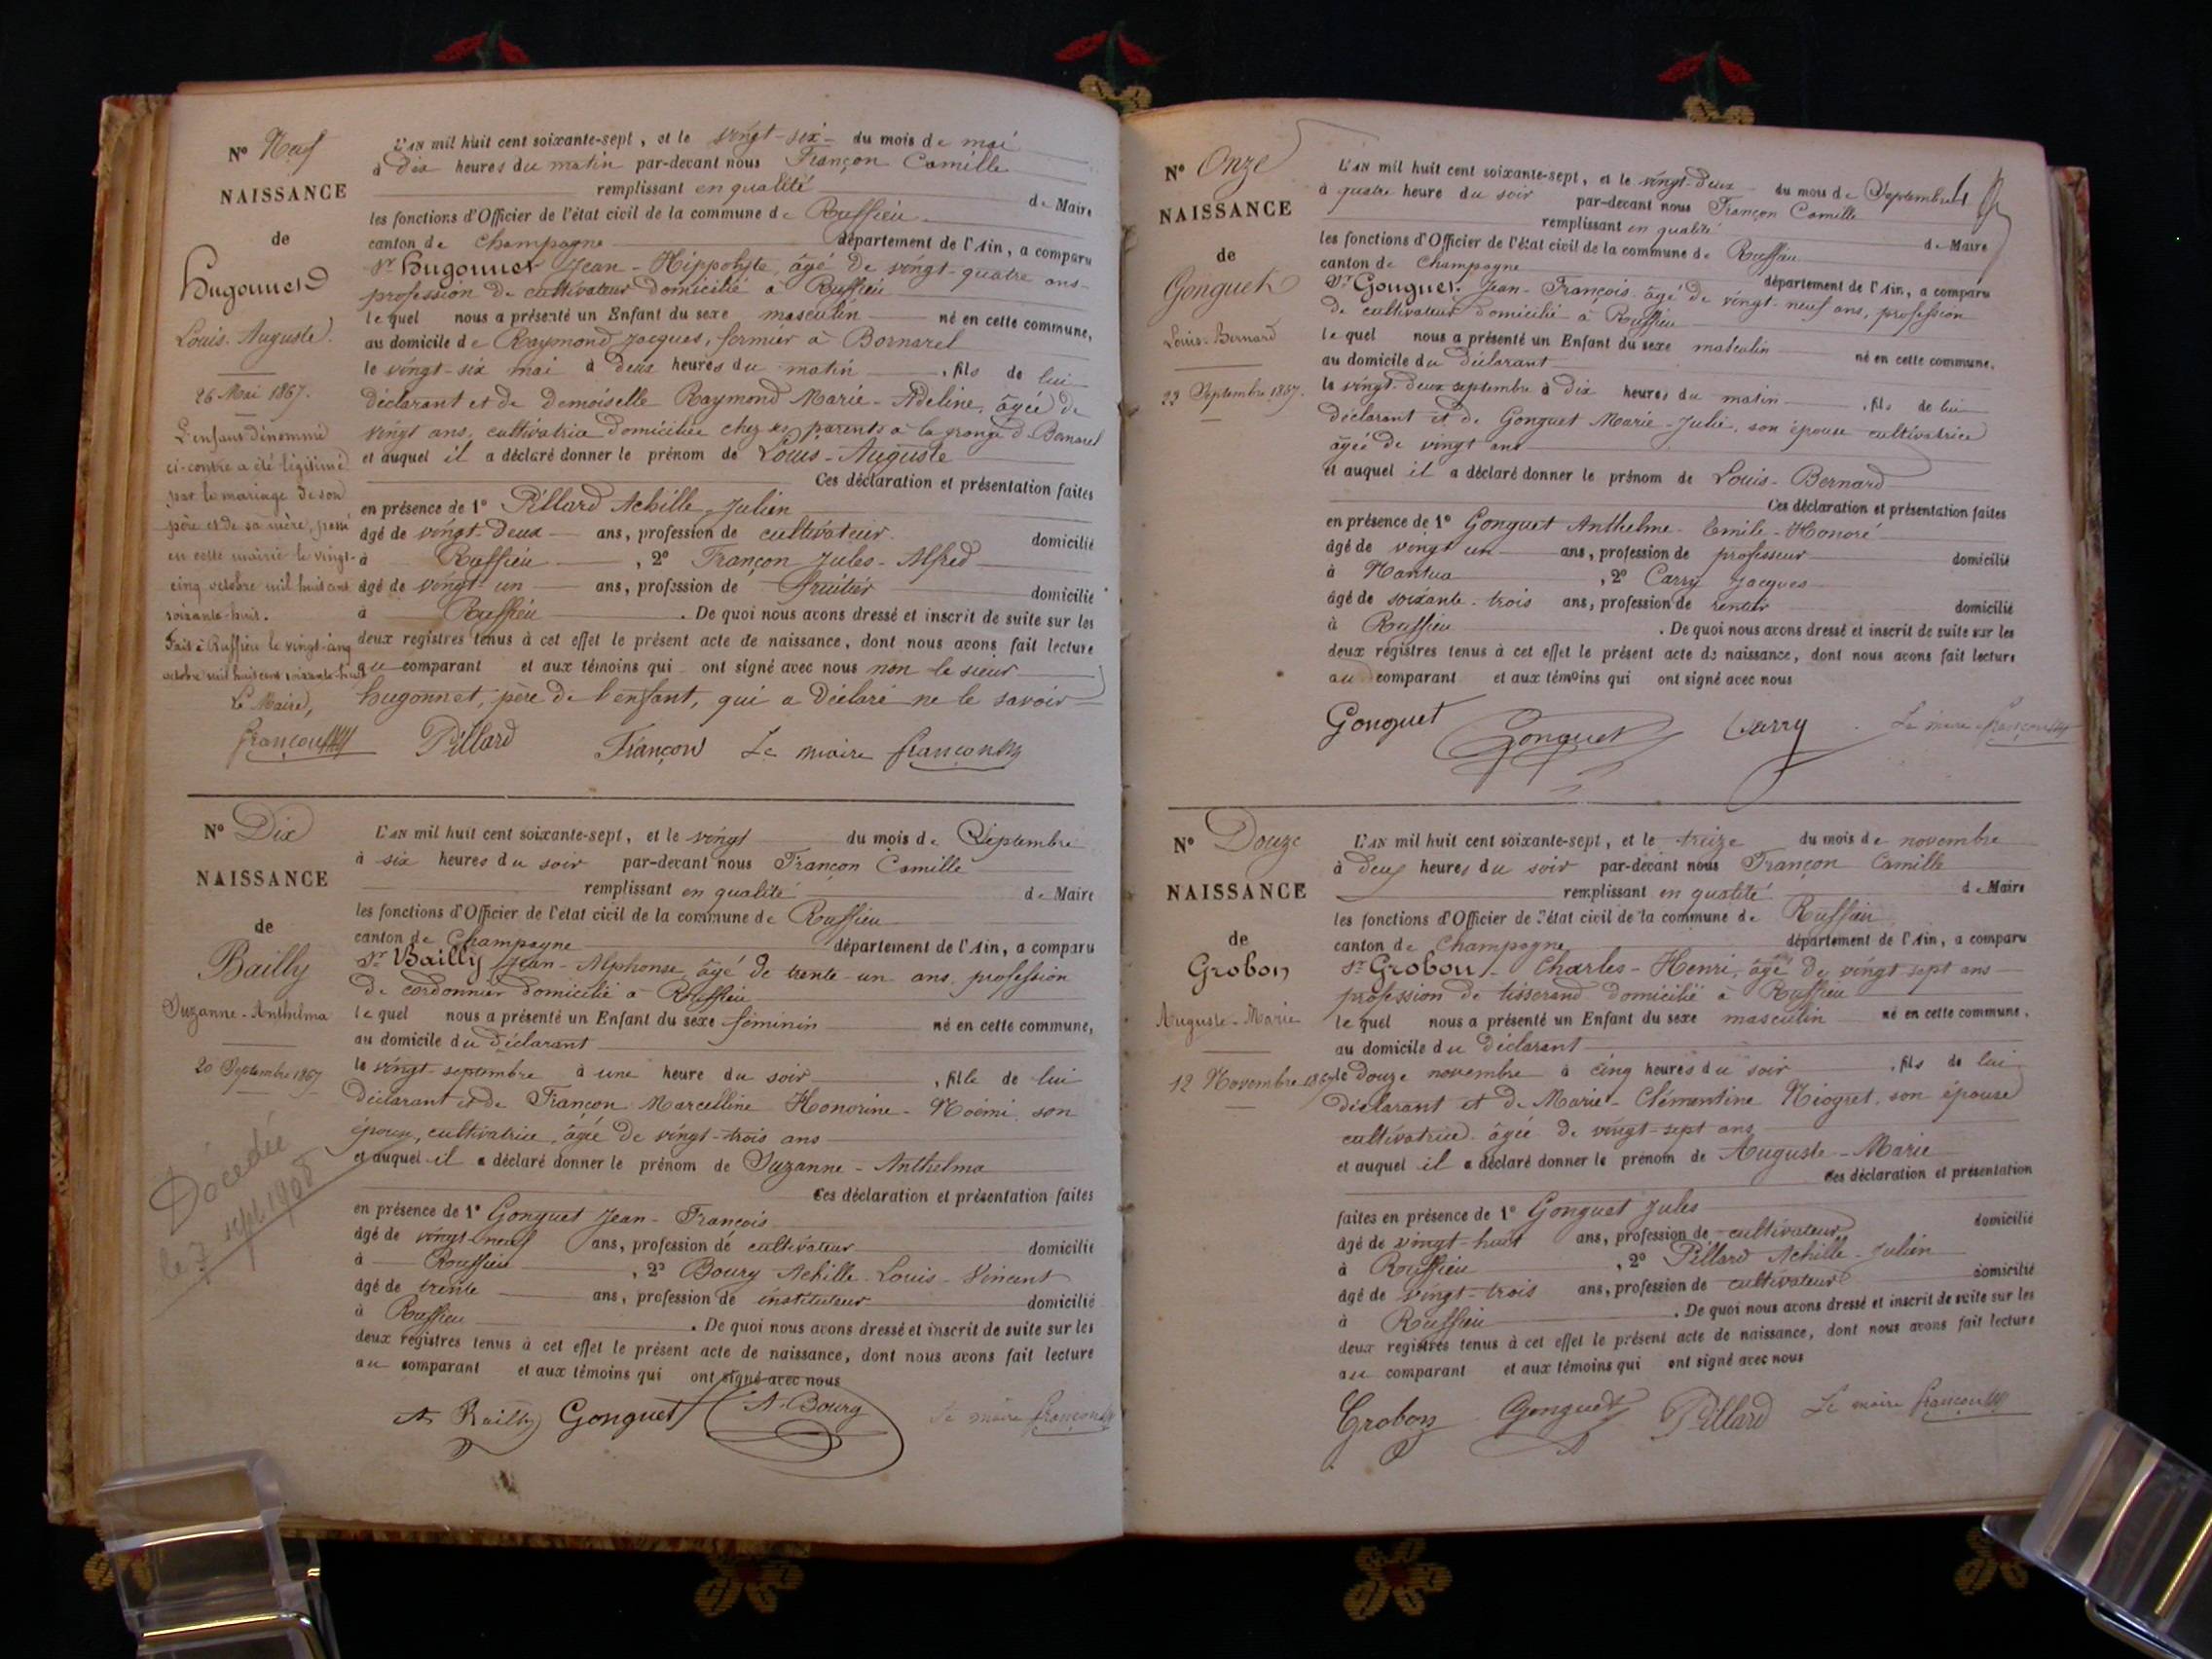 N° Neuf
NAISSANCE
de
Hugonnet
Louis-Auguste.
26 Mai 1867.
L'enfant dénommé
ci-contre a été légitimé
par le mariage de son
père et de sa mère, passé
en cette mairie le vingt-
cinq octobre mil huit cent
soixante-huit.
Fait à Ruffieu le vingt-cinq
octobre mil huit cent soixante-huit
Le Maire,
Françon
L'AN mil huit cent soixante-sept, et le vingt-six du mois de mai
à dix heures du matin par-devant nous Françon Camille
remplissant en qualité de Maire
les fonctions d'Officier de l'état civil de la commune de Ruffieu
canton de Champagne département de l'Ain, a comparu
Sr Hugonnet Jean-Hippolyte, âgé de vingt-quatre ans
profession de cultivateur domicilié à Ruffieu
lequel nous a présenté un Enfant du sexe masculin né en cette commune,
au domicile de Raymond Jacques, fermier à Bornarel
le vingt-six mai à deux heures du matin, fils de lui
déclarant et de Demoiselle Raymond Marie-Adeline, âgée de
vingt ans, cultivatrice domiciliée chez ses parents à la grange d. Bornarel
et auquel il a déclaré donner le prénom de Louis-Auguste
Ces déclaration et présentation faites
en présence de 1° Pillard Achille-Julien
âgé de vingt-deux ans, profession de cultivateur domicilié
à Ruffieu, 2° Françon Jules-Alfred
âgé de vingt-un ans, profession de fruitier domicilié
à Ruffieu. De quoi nous avons dressé et inscrit de suite sur les
deux registres tenus à cet effet le présent acte de naissance, dont nous avons fait lecture
au comparant et aux témoins qui ont signé avec nous non le sieur
Hugonnet, père de l'enfant, qui a déclaré ne le savoir
Pillard Françon Le maire Françon
N° Dix
NAISSANCE
de
Bailly
Suzanne-Anthelma
20 Septembre 1867
Décédée
le 7 sept. 1908
L'AN mil huit cent soixante-sept, et le vingt du mois de Septembre
à six heures du soir par-devant nous Françon Camille
remplissant en qualité de Maire
les fonctions d'Officier de l'état civil de la commune de Ruffieu
canton de Champagne département de l'Ain, a comparu
Sr Bailly Jean-Alphonse, âgé de trente-un ans, profession
de cordonnier domicilié à Ruffieu
lequel nous a présenté un Enfant du sexe féminin né en cette commune,
au domicile du déclarant
le vingt septembre à une heure du soir, fille de lui
déclarant et de Françon Marcelline Honorine-Noémi, son
épouse, cultivatrice, âgée de vingt-trois ans
et auquel il a déclaré donner le prénom de Suzanne-Anthelma
Ces déclaration et présentation faites
en présence de 1° Gonguet Jean-François
âgé de vingt-neuf ans, profession de cultivateur domicilié
à Ruffieu, 2° Boury Achille-Louis-Vincent
âgé de trente ans, profession de instituteur domicilié
à Ruffieu. De quoi nous avons dressé et inscrit de suite sur les
deux registres tenus à cet effet le présent acte de naissance, dont nous avons fait lecture
au comparant et aux témoins qui ont signé avec nous
A Bailly Gonguet A. Boury Le maire Françon
N° Onze
NAISSANCE
de
Gonguet
Louis-Bernard
22 Septembre 1867.
L'AN mil huit cent soixante-sept, et le vingt-deux du mois de Septembre
à quatre heure du soir par-devant nous Françon Camille
remplissant en qualité de Maire
les fonctions d'Officier de l'état civil de la commune de Ruffieu
canton de Champagne département de l'Ain, a comparu
Sr Gonguet Jean-François âgé de vingt-neuf ans, profession
de cultivateur domicilié à Ruffieu
lequel nous a présenté un Enfant du sexe masculin né en cette commune,
au domicile du déclarant
le vingt-deux septembre à dix heures du matin, fils de lui
déclarant et de Gonguet Marie-Julie, son épouse cultivatrice
âgée de vingt ans
et auquel il a déclaré donner le prénom de Louis-Bernard
Ces déclaration et présentation faites
en présence de 1° Gonguet Anthelme-Emile-Honoré
âgé de vingt un ans, profession de professeur domicilié
à Nantua, 2° Carry Jacques
âgé de soixante-trois ans, profession de rentier domicilié
à Ruffieu. De quoi nous avons dressé et inscrit de suite sur les
deux registres tenus à cet effet le présent acte de naissance, dont nous avons fait lecture
au comparant et aux témoins qui ont signé avec nous
Gonguet Gonguet Carry Le maire Françon
N° Douze
NAISSANCE
de
Grobon
Auguste-Marie
12 Novembre 1867
L'AN mil huit cent soixante-sept, et le treize du mois de novembre
à deux heures du soir par-devant nous Françon Camille
remplissant en qualité de Maire
les fonctions d'Officier de l'état civil de la commune de Ruffieu
canton de Champagne département de l'Ain, a comparu
Sr Grobon Charles-Henri, âgé de vingt sept ans
profession de tisserand domicilié à Ruffieu
lequel nous a présenté un Enfant du sexe masculin né en cette commune,
au domicile du déclarant
le douze novembre à cinq heures du soir, fils de lui
déclarant et de Marie-Clémentine Niogret, son épouse
cultivatrice âgée de vingt-sept ans
et auquel il a déclaré donner le prénom de Auguste-Marie
Ces déclaration et présentation
faites en présence de 1° Gonguet Jules
âgé de vingt-huit ans, profession de cultivateur domicilié
à Ruffieu, 2° Pillard Achille-Julien
âgé de vingt-trois ans, profession de cultivateur domicilié
à Ruffieu. De quoi nous avons dressé et inscrit de suite sur les
deux registres tenus à cet effet le présent acte de naissance, dont nous avons fait lecture
au comparant et aux témoins qui ont signé avec nous
Grobon Gonguet Pillard Le maire Françon